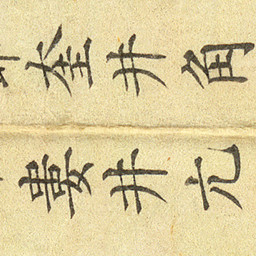 奎井角
婁井亢